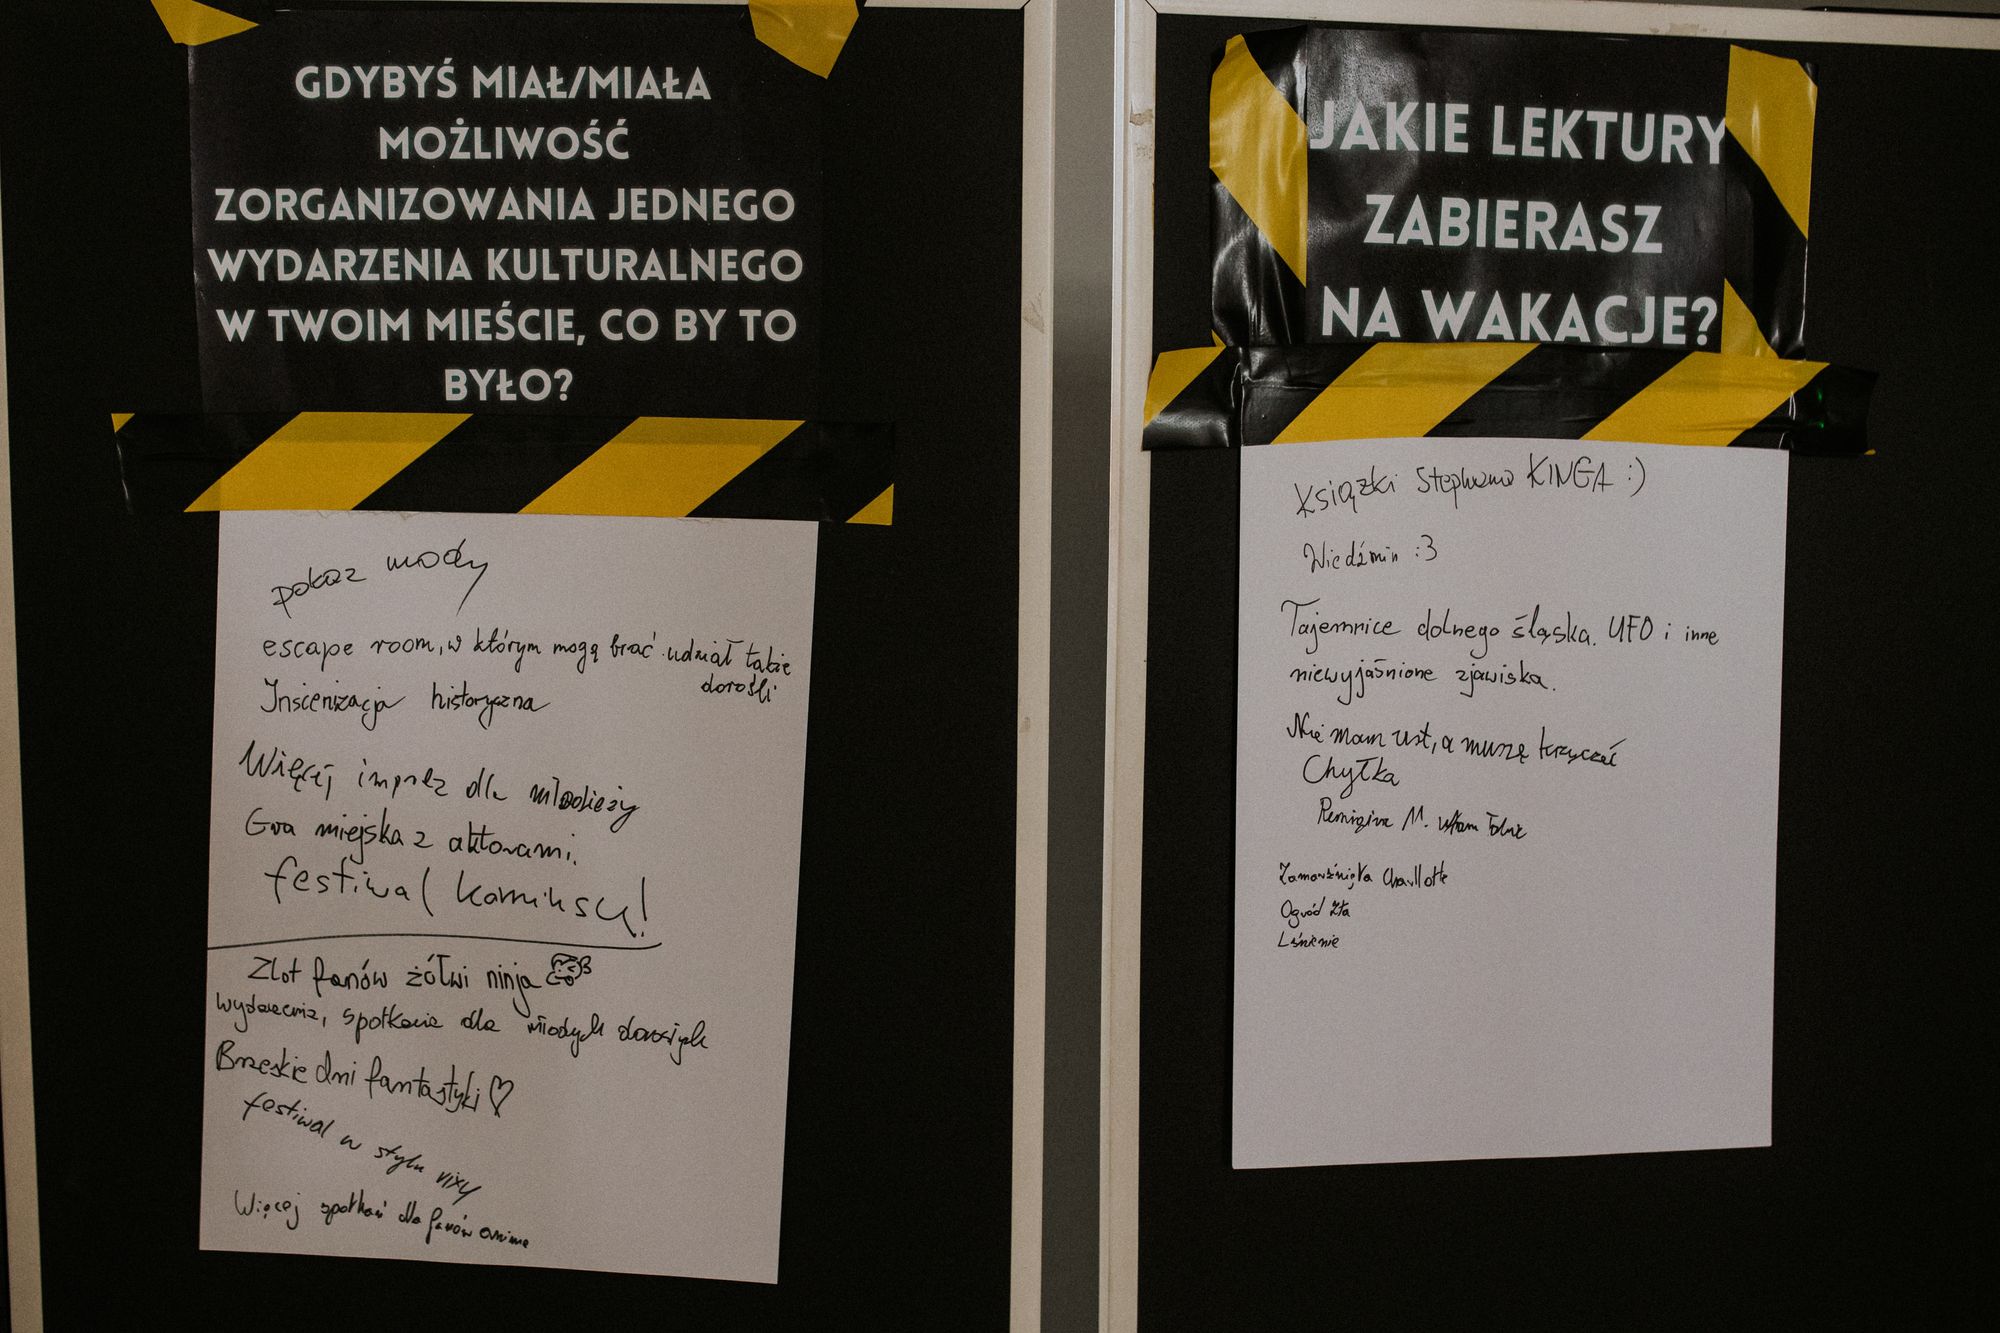 GDYBYŚ MIAŁ/MIAŁA
MOŻLIWOŚĆ
ZORGANIZOWANIA JEDNEGO
WYDARZENIA KULTURALNEGO
W TWOIM MIEŚCIE, CO BY TO
BYŁO?
pokaz mody
escape room, w którym mogą brać udział także
dorośli
Inscenizacja historyczna
Więcej imprez dla młodzieży
Gra miejska z aktorami.
festiwal
Zlot fanów żółwi ninja
wydarzenia, spotkania dla młodych dorosłych
Brzeskie dni fantastyki ♡
festiwal w stylu vixy
Więcej spotkań dla fanów anime
JAKIE LEKTURY
ZABIERASZ
NA WAKACJE?
Książki Stephena KINGA :)
Wiedźmin :3
Tajemnice dolnego śląska. UFO i inne
niewyjaśnione zjawiska.
Nie mam ust, a muszę krzyczeć
Chyłka
Remigiusz M.
Zamarznięta Charlotte
Ogród Zła
Lśnienie